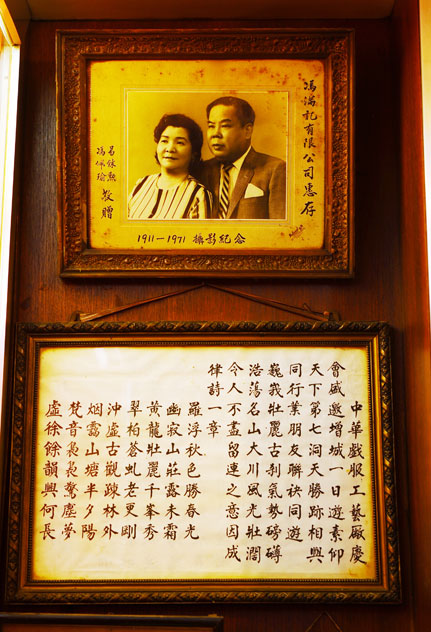 馮滿記有限公司惠存
馮佩瑜
敬贈
1911—1971 攝影紀念
中華戲服工藝厰慶
會盛邀增城一日遊素仰
天下第七洞天勝跡相與
同行業朋友聯袂同遊
巍峩壯麗古刹氣勢磅礡
浩蕩名山大川風光壯濶
令人不盡留連之意因成
律詩一章
羅浮秋色勝春光
幽寂山莊露未霜
黃龍壯麗千峯秀
翠柏蒼虬老更剛
沖虛古觀疎林外
烟靄山塘半夕陽
梵音裊裊驚塵夢
虛徐餘韻興何長